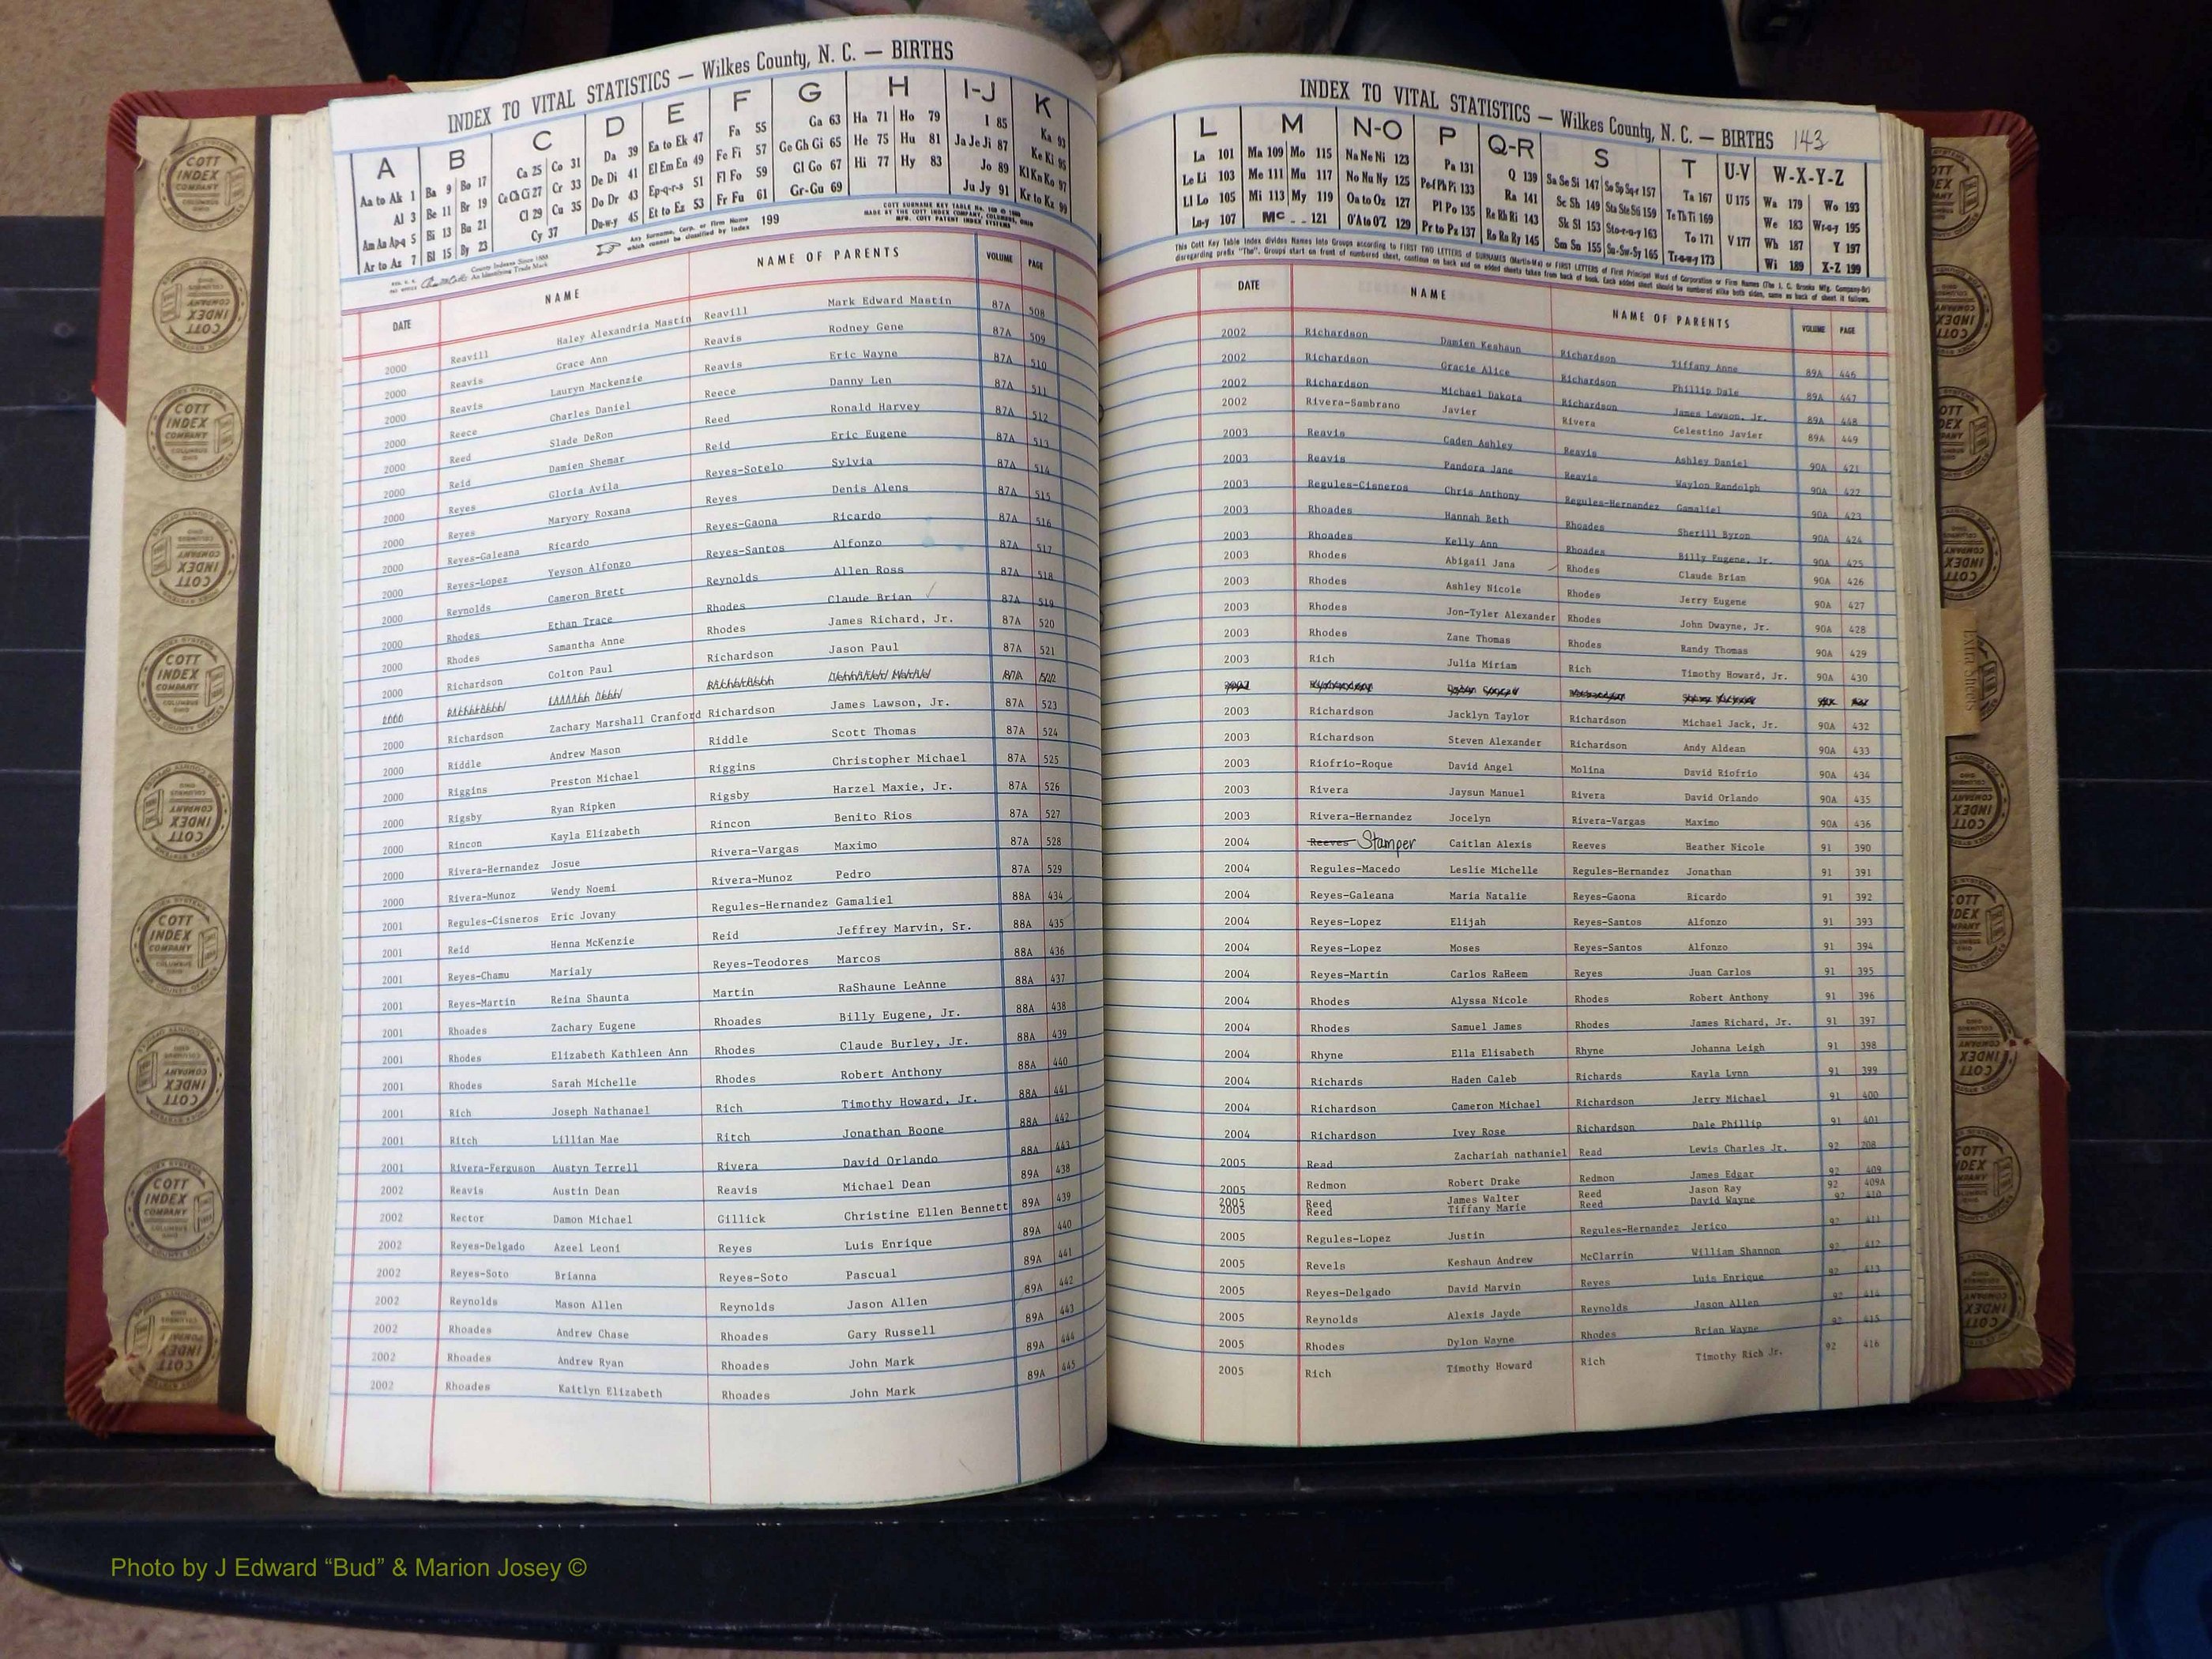 INDEX TO VITAL STATISTICS — Wilkes County, N. C. — BIRTHS
A B C D E F G H I-J K
Aa to Ak 1 Ba 9 Bo 17 Ca 25 Co 31 Da 39 Ea to Ek 47 Fa 55 Ga 63 Ha 71 Ho 79 I 85 Ka 93
Al 3 Be 11 Br 19 Ce Ch Ci 27 Cr 33 De Di 41 El Em En 49 Fe Fi 57 Ge Gh Gi 65 He 75 Hu 81 Ja Je Ji 87 Ke Ki 95
Am An Ap-q 5 Bi 13 Bu 21 Cl 29 Cu 35 Do Dr 43 Ep-q-r-s 51 Fl Fo 59 Gl Go 67 Hi 77 Hy 83 Jo 89 Kl Kn Ko 97
Ar to Az 7 Bl 15 By 23 Cy 37 Du-w-y 45 Et to Ez 53 Fr Fu 61 Gr-Gu 69 Ju Jy 91 Kr to Kz 99
Any Surname, Corp. or Firm Name which cannot be classified by Index 199
County Indexes Since 1888
An Identifying Trade Mark
DATE NAME NAME OF PARENTS VOLUME PAGE
2000 Reavill Haley Alexandria Mastin Reavill Mark Edward Mastin 87A 508
2000 Reavis Grace Ann Reavis Rodney Gene 87A 509
2000 Reavis Lauryn Mackenzie Reavis Eric Wayne 87A 510
2000 Reece Charles Daniel Reece Danny Len 87A 511
2000 Reed Slade DeRon Reed Ronald Harvey 87A 512
2000 Reid Damien Shemar Reid Eric Eugene 87A 513
2000 Reyes Gloria Avila Reyes-Sotelo Sylvia 87A 514
2000 Reyes Maryory Roxana Reyes Denis Alens 87A 515
2000 Reyes-Galeana Ricardo Reyes-Gaona Ricardo 87A 516
2000 Reyes-Lopez Yeyson Alfonzo Reyes-Santos Alfonzo 87A 517
2000 Reynolds Cameron Brett Reynolds Allen Ross 87A 518
2000 Rhodes Ethan Trace Rhodes Claude Brian 87A 519
2000 Rhodes Samantha Anne Rhodes James Richard, Jr. 87A 520
2000 Richardson Colton Paul Richardson Jason Paul 87A 521
2000 Richardson Zachary Marshall Cranford Richardson James Lawson, Jr. 87A 523
2000 Riddle Andrew Mason Riddle Scott Thomas 87A 524
2000 Riggins Preston Michael Riggins Christopher Michael 87A 525
2000 Rigsby Ryan Ripken Rigsby Harzel Maxie, Jr. 87A 526
2000 Rincon Kayla Elizabeth Rincon Benito Rios 87A 527
2000 Rivera-Hernandez Josue Rivera-Vargas Maximo 87A 528
2000 Rivera-Munoz Wendy Noemi Rivera-Munoz Pedro 87A 529
2001 Regules-Cisneros Eric Jovany Regules-Hernandez Gamaliel 88A 434
2001 Reid Henna McKenzie Reid Jeffrey Marvin, Sr. 88A 435
2001 Reyes-Chamu Marialy Reyes-Teodores Marcos 88A 436
2001 Reyes-Martin Reina Shaunta Martin RaShaune LeAnne 88A 437
2001 Rhoades Zachary Eugene Rhoades Billy Eugene, Jr. 88A 438
2001 Rhodes Elizabeth Kathleen Ann Rhodes Claude Burley, Jr. 88A 439
2001 Rhodes Sarah Michelle Rhodes Robert Anthony 88A 440
2001 Rich Joseph Nathanael Rich Timothy Howard, Jr. 88A 441
2001 Ritch Lillian Mae Ritch Jonathan Boone 88A 442
2001 Rivera-Ferguson Austyn Terrell Rivera David Orlando 88A 443
2002 Reavis Austin Dean Reavis Michael Dean 89A 438
2002 Rector Damon Michael Gillick Christine Ellen Bennett 89A 439
2002 Reyes-Delgado Azeel Leoni Reyes Luis Enrique 89A 440
2002 Reyes-Soto Brianna Reyes-Soto Pascual 89A 441
2002 Reynolds Mason Allen Reynolds Jason Allen 89A 442
2002 Rhoades Andrew Chase Rhoades Gary Russell 89A 443
2002 Rhoades Andrew Ryan Rhoades John Mark 89A 444
2002 Rhoades Kaitlyn Elizabeth Rhoades John Mark 89A 445
INDEX TO VITAL STATISTICS — Wilkes County, N. C. — BIRTHS 143
L M N-O P Q-R S T U-V W-X-Y-Z
La 101 Ma 109 Mo 115 Na Ne Ni 123 Pa 131 Q 139 Sa Se Si 147 So Sp Sq-r 157 Ta 167 U 175 Wa 179 Wo 193
Le Li 103 Me 111 Mu 117 No Nu Ny 125 Pe-f Ph Pi 133 Ra 141 Sc Sh 149 Sta Ste Sti 159 Te Th Ti 169 We 183 Wr-u-y 195
Ll Lo 105 Mi 113 My 119 Oa to Oz 127 Pl Po 135 Re Rh Ri 143 Sk Sl 153 Sto-r-u-y 163 To 171 V 177 Wh 187 Y 197
Lu-y 107 Mc 121 O'A to O'Z 129 Pr to Pz 137 Ro Ru Ry 145 Sm Sn 155 Su-Sw-Sy 165 Tr-u-w-y 173 Wi 189 X-Z 199
DATE NAME NAME OF PARENTS VOLUME PAGE
2002 Richardson Damien Keshaun Richardson Tiffany Anne 89A 446
2002 Richardson Gracie Alice Richardson Phillip Dale 89A 447
2002 Richardson Michael Dakota Richardson James Lawson, Jr. 89A 448
2002 Rivera-Sambrano Javier Rivera Celestino Javier 89A 449
2003 Reavis Caden Ashley Reavis Ashley Daniel 90A 421
2003 Reavis Pandora Jane Reavis Waylon Randolph 90A 422
2003 Regules-Cisneros Chris Anthony Regules-Hernandez Gamaliel 90A 423
2003 Rhoades Hannah Beth Rhoades Sherill Byron 90A 424
2003 Rhoades Kelly Ann Rhoades Billy Eugene, Jr. 90A 425
2003 Rhodes Abigail Jana Rhodes Claude Brian 90A 426
2003 Rhodes Ashley Nicole Rhodes Jerry Eugene 90A 427
2003 Rhodes Jon-Tyler Alexander Rhodes John Dwayne, Jr. 90A 428
2003 Rhodes Zane Thomas Rhodes Randy Thomas 90A 429
2003 Rich Julia Miriam Rich Timothy Howard, Jr. 90A 430
2003 Richardson Jacklyn Taylor Richardson Michael Jack, Jr. 90A 432
2003 Richardson Steven Alexander Richardson Andy Aldean 90A 433
2003 Riofrio-Roque David Angel Molina David Riofrio 90A 434
2003 Rivera Jaysun Manuel Rivera David Orlando 90A 435
2003 Rivera-Hernandez Jocelyn Rivera-Vargas Maximo 90A 436
2004 Reeves Stamper Caitlan Alexis Reeves Heather Nicole 91 390
2004 Regules-Macedo Leslie Michelle Regules-Hernandez Jonathan 91 391
2004 Reyes-Galeana Maria Natalie Reyes-Gaona Ricardo 91 392
2004 Reyes-Lopez Elijah Reyes-Santos Alfonzo 91 393
2004 Reyes-Lopez Moses Reyes-Santos Alfonzo 91 394
2004 Reyes-Martin Carlos RaHeem Reyes Juan Carlos 91 395
2004 Rhodes Alyssa Nicole Rhodes Robert Anthony 91 396
2004 Rhodes Samuel James Rhodes James Richard, Jr. 91 397
2004 Rhyne Ella Elisabeth Rhyne Johanna Leigh 91 398
2004 Richards Haden Caleb Richards Kayla Lynn 91 399
2004 Richardson Cameron Michael Richardson Jerry Michael 91 400
2004 Richardson Ivey Rose Richardson Dale Phillip 91 401
2005 Read Zachariah nathaniel Read Lewis Charles Jr. 92 208
2005 Redmon Robert Drake Redmon James Edgar 92 409
2005 Reed James Walter Reed Jason Ray 92 409A
2005 Reed Tiffany Marie Reed David Wayne 92 410
2005 Regules-Lopez Justin Regules-Hernandez Jerico 92 411
2005 Revels Keshaun Andrew McClarrin William Shannon 92 412
2005 Reyes-Delgado David Marvin Reyes Luis Enrique 92 413
2005 Reynolds Alexis Jayde Reynolds Jason Allen 92 414
2005 Rhodes Dylon Wayne Rhodes Brian Wayne 92 415
2005 Rich Timothy Howard Rich Timothy Rich Jr. 92 416
COTT INDEX COMPANY COLUMBUS OHIO
Photo by J Edward “Bud” & Marion Josey ©